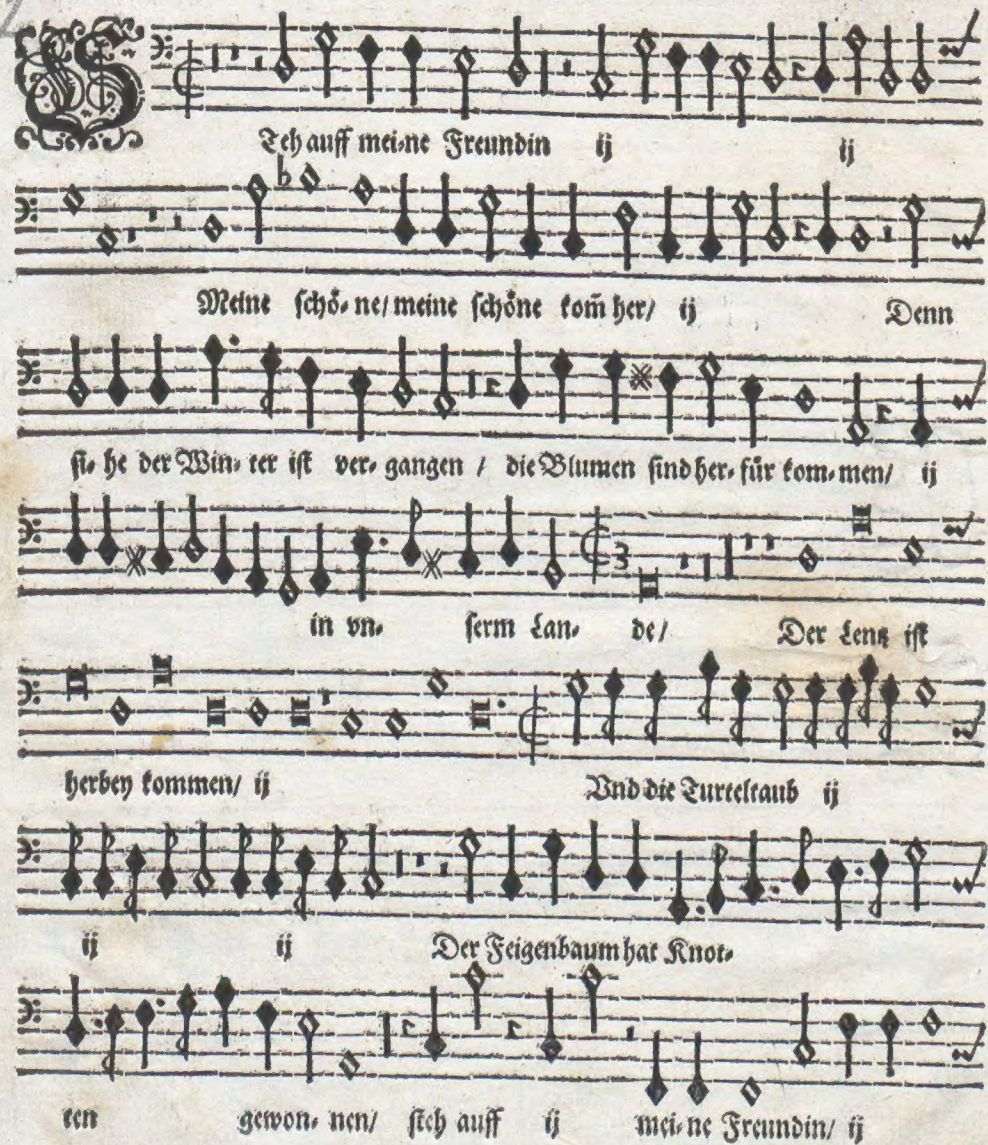 STeh auff mei-ne Freundin ij ij
Meine schö-ne/ meine schöne kom̃ her/ ij Denn
si-he der Win-ter ist ver-gangen / die Blumen sind her-für kom-men/ ij
in vn-serm Lan-de/ Der Lentz ist
herbey kommen/ ij Vnd die Turteltaub ij
ij ij Der Feigenbaum hat Knot-
ten gewon-nen/ steh auff ij mei-ne Freundin/ ij